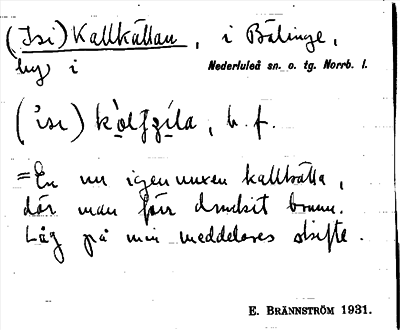 (Isi) Kallkällan, i Bälinge,
by i Nederluleå sn. o. tg. Norrb. l.
('isı) kɑ̀lʃzíla, b. f.
= En nu igenvuxen kallkälla,
där man förr druckit brunn.
Låg på min meddelares skifte.
E. BRÄNNSTRÖM 1931.